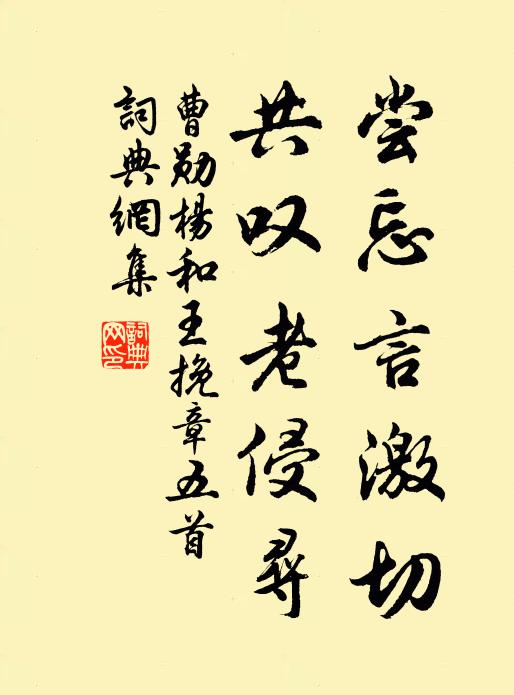 尝忘言激切
共叹老侵寻
曹勋杨和王挽章五首
词典網集
詞典網印